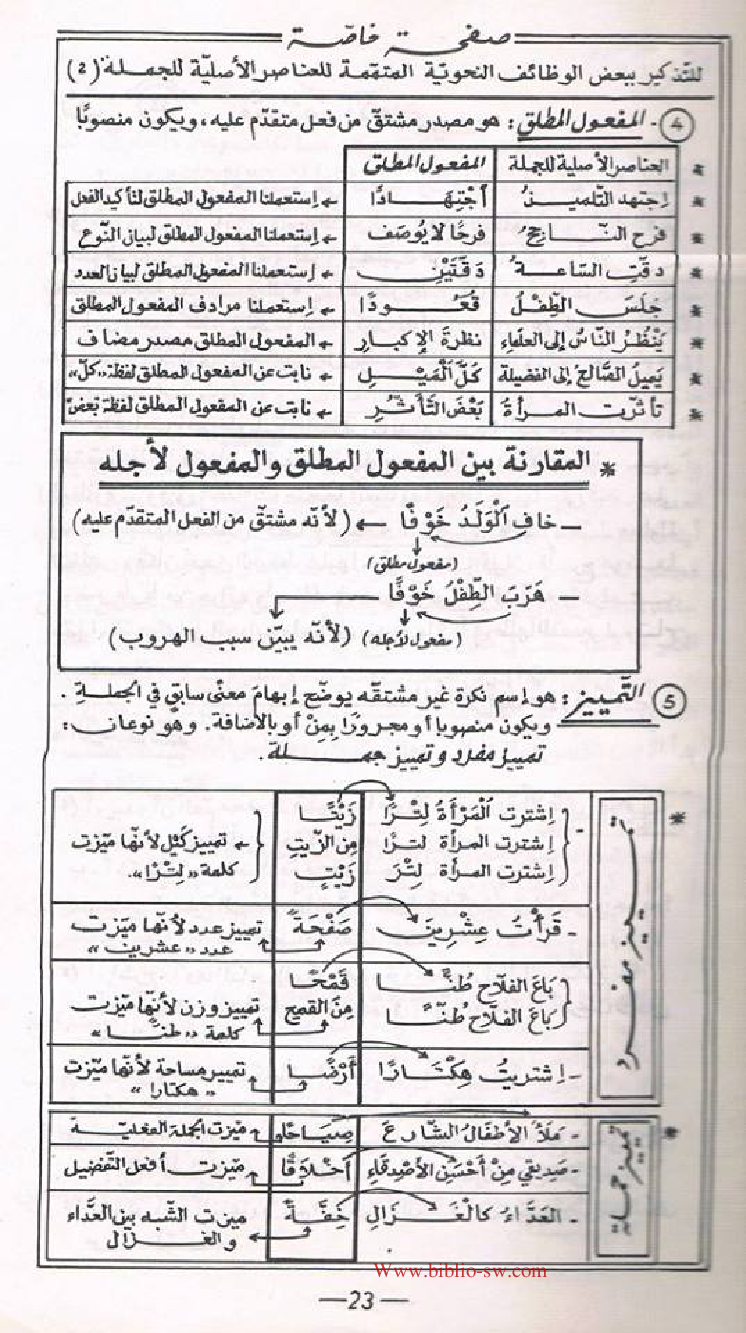 صفحة خاصّة
للتذكير ببعض الوظائف النحويّة المتمّمة للعناصر الأصليّة للجملة (2)
④ - المفعول المطلق : هو مصدر مشتقّ من فعل متقدّم عليه، ويكون منصوبًا
* العناصر الأصلية للجملة المفعول المطلق
* اِجتهد التّلميذُ اَجْتِهَادًا ← إستعملنا المفعول المطلق لتأكيد الفعل
* فرح النّاجحُ فرحًا لا يُوصَف ← إستعملنا المفعول المطلق لبيان النّوع
* دقّت السّاعةُ دَقّتَيْنِ ← إستعملنا المفعول المطلق لبيان العدد
* جَلَسَ الطِّفْلُ قُعُودًا ← إستعملنا مرادف المفعول المطلق
* يَنْظُرُ النّاسُ إلى العلماءِ نظرةَ الإِكبارِ ← المفعول المطلق مصدر مضاف
* يَميلُ الصّالحُ إلى الفضيلة كُلَّ اَلْمَيْلِ ← نابت عن المفعول المطلق لفظة «كلّ»
* تأثّرت المرأةُ بَعْضَ التَّأثُّرِ ← نابت عن المفعول المطلق لفظة بعضَ
* المقارنة بين المفعول المطلق والمفعول لأجله
- خافَ اَلْوَلَدُ خَوْفًا ← (لأنّه مشتقّ من الفعل المتقدّم عليه)
(مفعول مطلق)
- هَرَبَ الطِّفْلُ خَوْفًا
(مفعول لأجله) (لأنّه يبيّن سبب الهروب)
⑤ التّمييز : هو إسم نكرة غير مشتقّة يوضّح إبهامَ معنًى سابقٍ في الجملةِ .
ويكون منصوبا أو مجرورًا بِمِنْ أو بالإضافة. وهو نوعان :
تمييز مفرد و تمييز جملة.
* تمييز مفرد
- اِشترت اَلْمَرْأَةُ لِتْرًا زَيْتًا
اِشترت المرأة لترًا مِن الزّيتِ ← تمييز كَيْل لأنّها ميّزت
اِشترت المرأة لِتْرَ زَيْتٍ كلمة «لِترًا».
- قَرَأْتُ عِشْرِينَ صَفْحَةً تمييز عدد لأنّها ميّزت
عدد «عشرين»
- بَاعَ الفلاّح طُنًّا قَمْحًا
بَاعَ الفلاّح طُنًّا مِنَ القمح تمييز وزن لأنّها ميّزت
كلمة «طنّا»
- اِشتريتُ هِكْتَارًا أَرْضًا تمييز مساحة لأنّها ميّزت
«هكتارا»
* تمييز جملة
- مَلَأَ الأطفالُ الشّارعَ صِيَاحًا ميّزت الجملة الفعليّة
- صَديقي مِنْ أَحْسَنِ الأصدقاءِ أَخْلاَقًا ميّزت أفعل التّفضيل
- العَدَّاءُ كالْغَزَالِ خِفَّةً ميّزت الشّبه بين العَدَّاء
والغزال
Www.biblio-sw.com
—23—